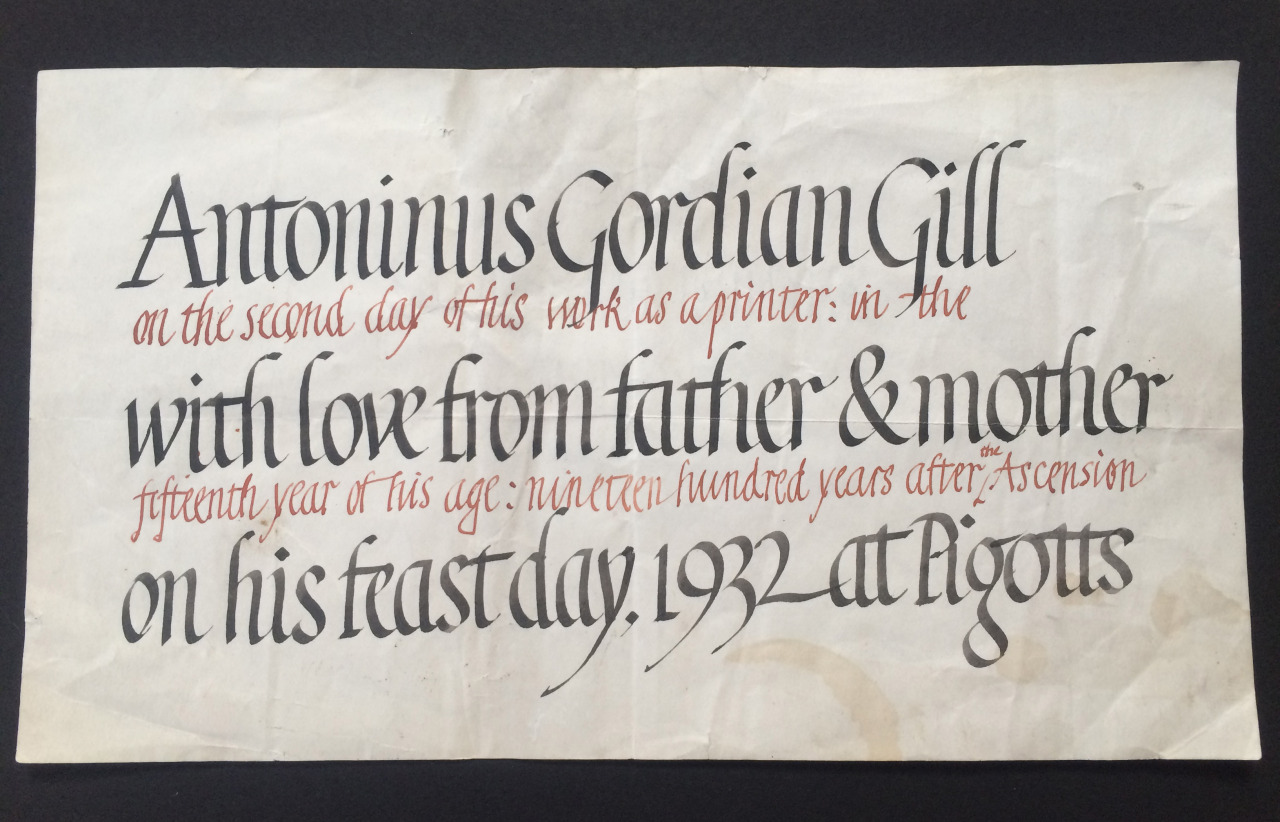 Antoninus Gordian Gill
on the second day of his work as a printer: in the
with love from father & mother
fifteenth year of his age: nineteen hundred years after the Ascension
on his feast day. 1932 at Pigotts